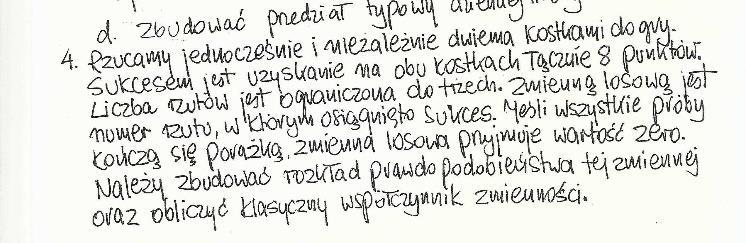 d. zbudować przedział typowy zmiennej
4. Rzucamy jednocześnie i niezależnie dwiema kostkami do gry.
Sukcesem jest uzyskanie na obu kostkach łącznie 8 punktów.
Liczba rzutów jest ograniczona do trzech. Zmienną losową jest
numer rzutu, w którym osiągnięto sukces. Jeśli wszystkie próby
kończą się porażką, zmienna losowa przyjmuje wartość zero.
Należy zbudować rozkład prawdopodobieństwa tej zmiennej
oraz obliczyć klasyczny współczynnik zmienności.